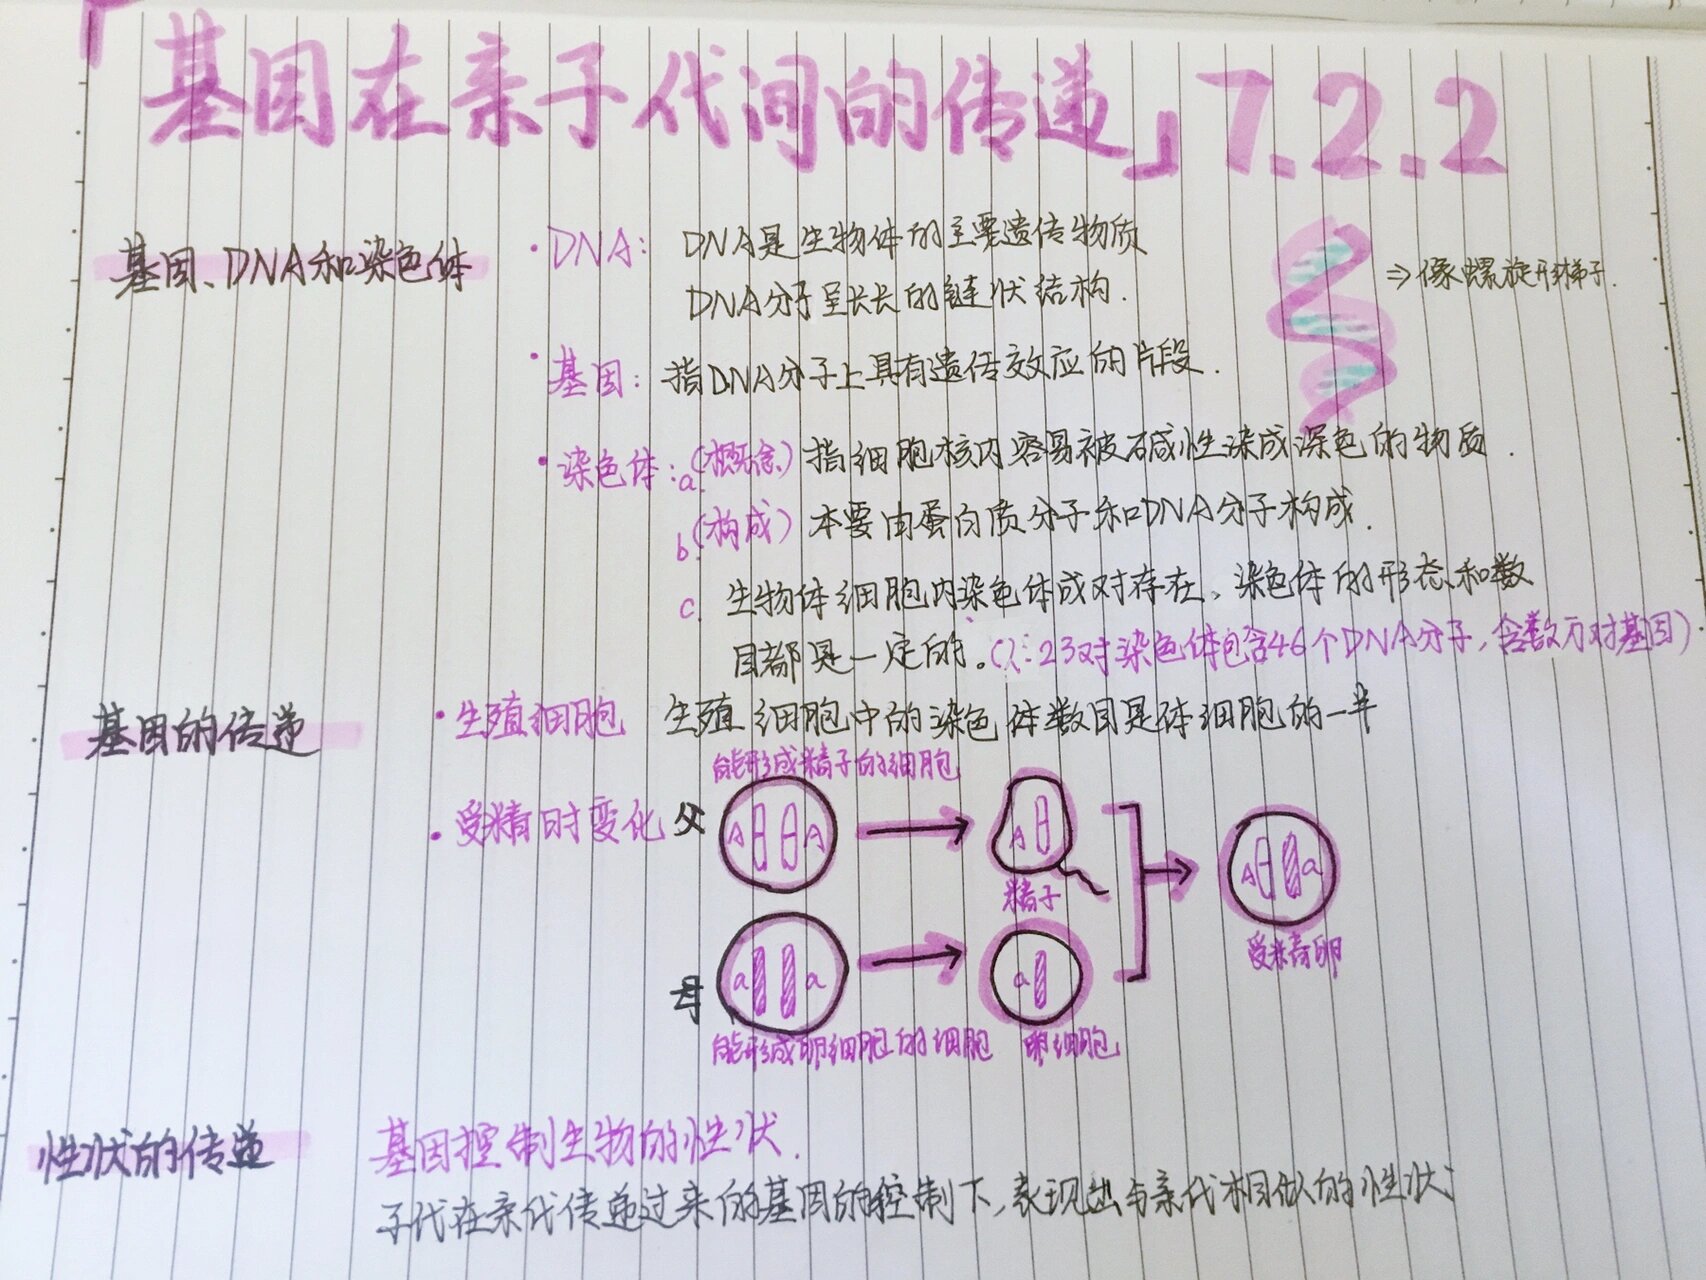 「基因在亲子代间的传递」7.2.2
基因、DNA和染色体
·DNA: DNA是生物体的主要遗传物质
DNA分子呈长长的链状结构.
⇒像螺旋形梯子.
·基因: 指DNA分子上具有遗传效应的片段.
·染色体: a.(概念) 指细胞核内容易被碱性染成深色的物质.
b.(构成) 本要由蛋白质分子和DNA分子构成.
c. 生物体细胞内染色体成对存在、染色体的形态和数
目都是一定的。(人:23对染色体包含46个DNA分子,含数万对基因)
基因的传递
·生殖细胞 生殖细胞中的染色体数目是体细胞的一半
·受精时变化
能形成精子的细胞
父 A A
A
精子
A a
受精卵
母 a a
a
能形成卵细胞的细胞
卵细胞
性状的传递
基因控制生物的性状.
子代在亲代传递过来的基因的控制下,表现出与亲代相似的性状